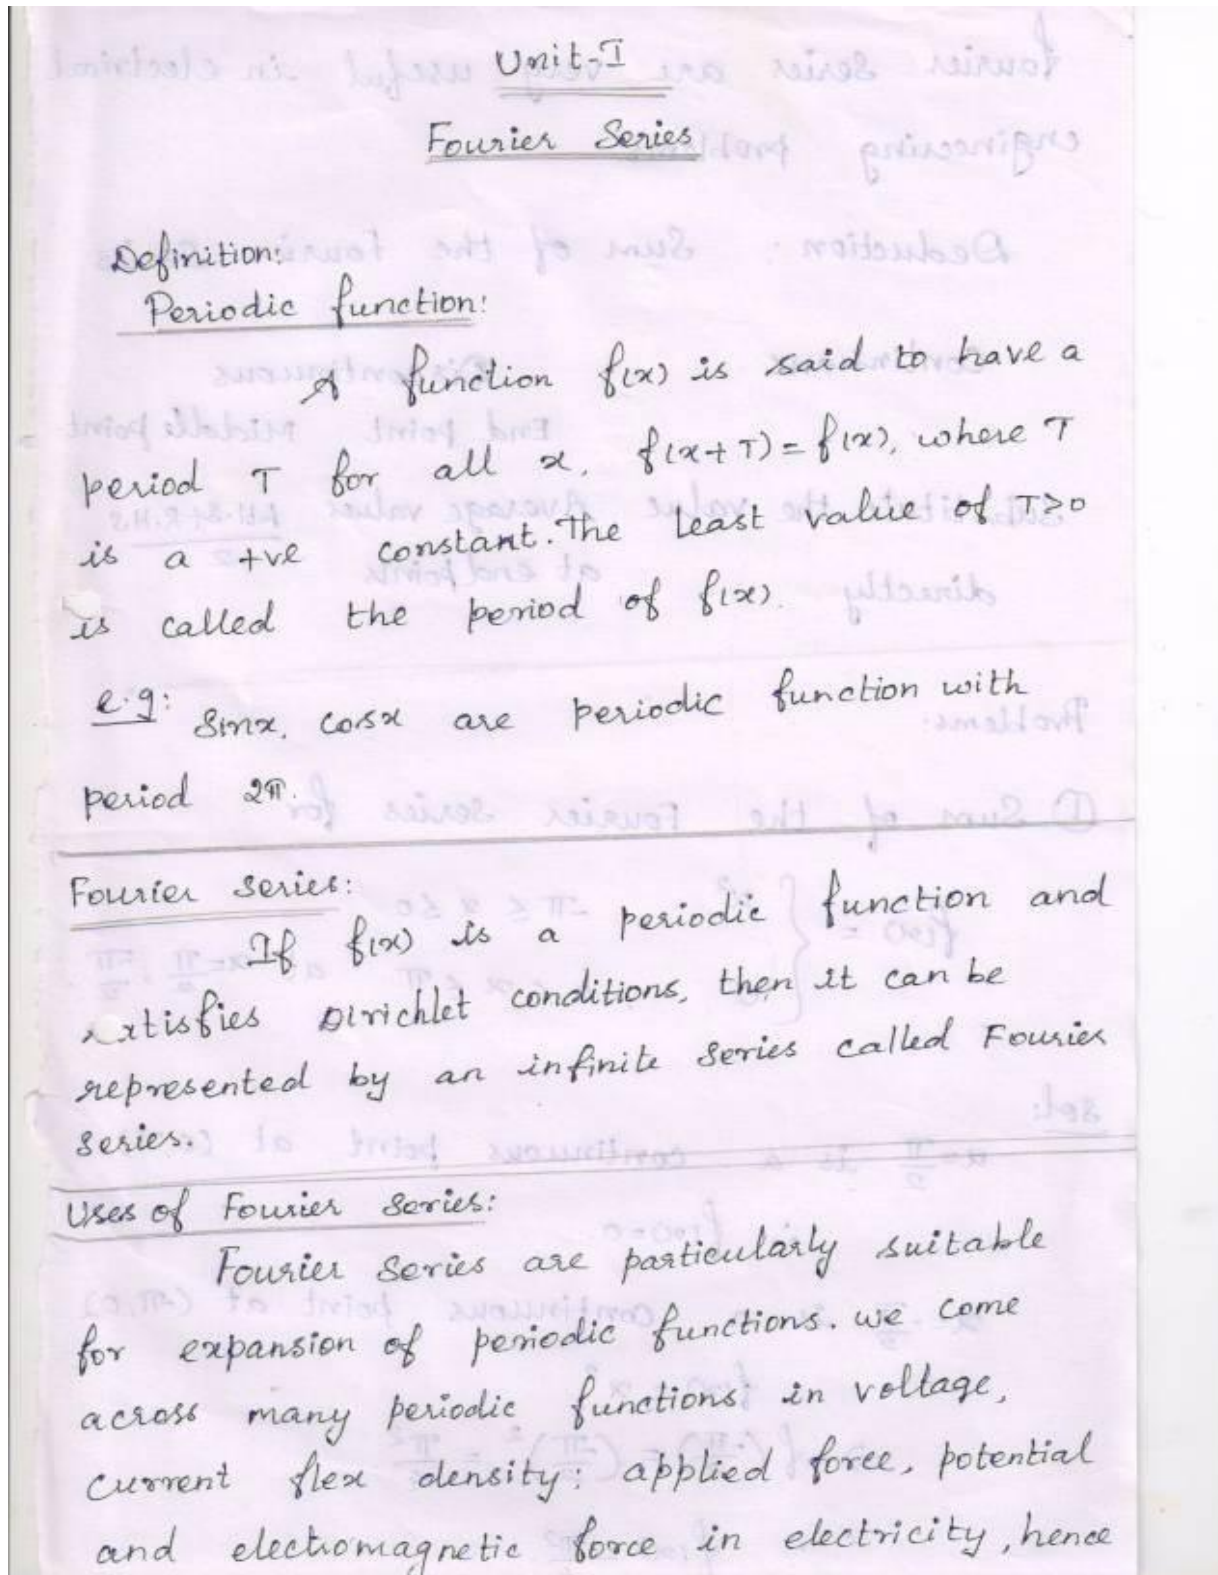 Unit-I
Fourier Series
Definition:
Periodic function:
A function f(x) is said to have a
period T for all x, f(x+T)=f(x), where T
is a +ve constant. The least value of T>0
is called the period of f(x).
e.g: Sinx, cosx are periodic function with
period 2π.
Fourier series:
If f(x) is a periodic function and
satisfies Dirichlet conditions, then it can be
represented by an infinite series called Fourier
series.
Uses of Fourier Series:
Fourier Series are particularly suitable
for expansion of periodic functions. we come
across many periodic functions in voltage,
current flex density; applied force, potential
and electromagnetic force in electricity, hence